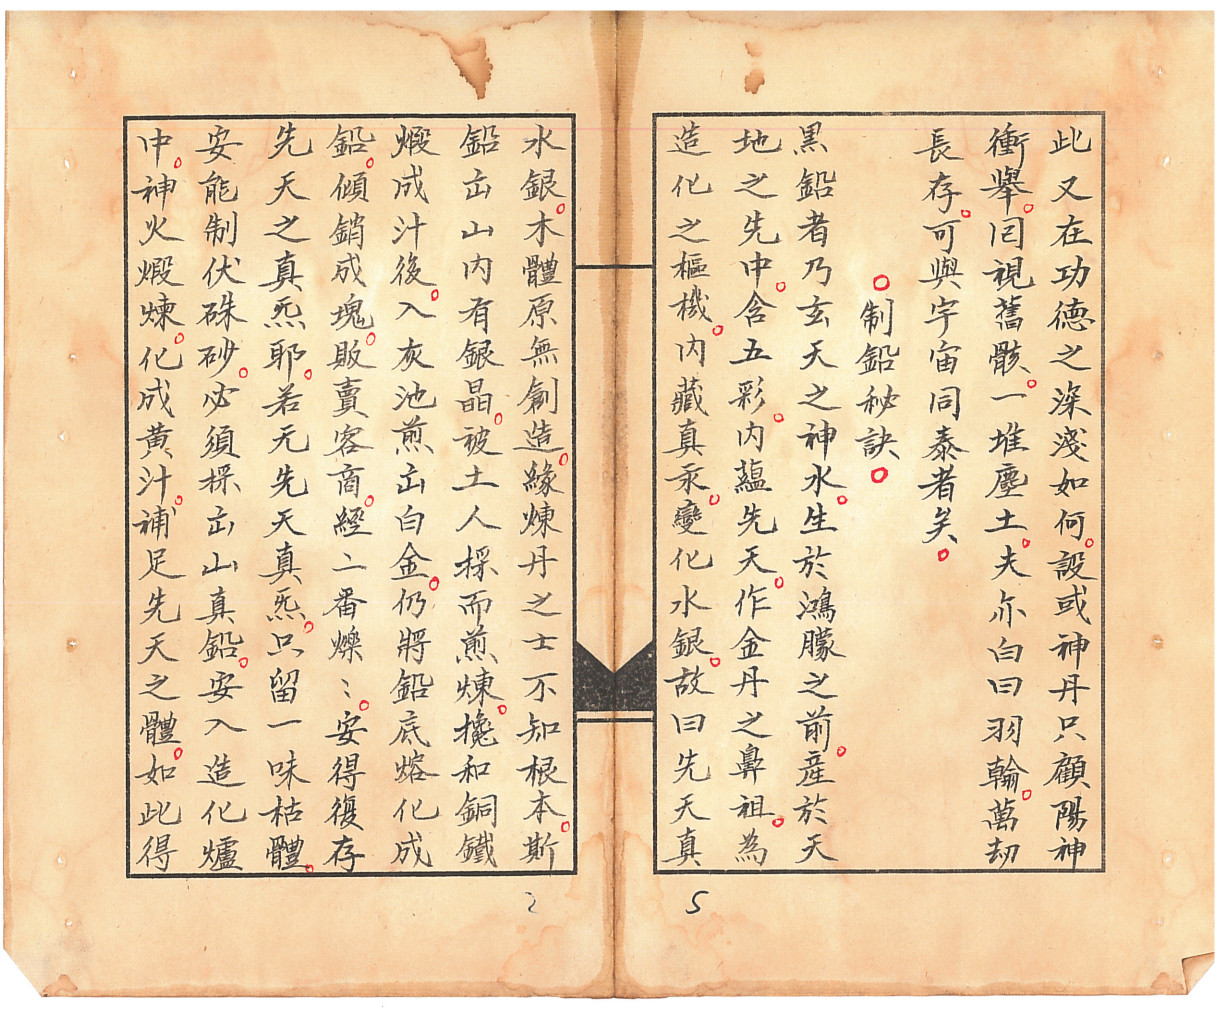 此又在功德之深淺如何。設或神丹只顧陽神
衝舉。囘視舊骸。一堆塵土。夫亦白曰羽翰。萬劫
長存。可與宇宙同泰者矣。
○制鉛秘訣○
黑鉛者乃玄天之神水。生於鴻朦之前。産於天
地之先中。含五彩。内蘊先天。作金丹之鼻祖。為
造化之樞機。内藏真汞。變化水銀。故曰先天真
水銀。木體原無創造。緣煉丹之士不知根本。斯
鉛出山内有銀晶。被土人採而煎煉。攙和銅鐵
煅成汁後。入灰池煎出白金。仍將鉛底熔化成
鉛。傾銷成塊。販賣客商。經二番爍〻。安得復存
先天之真炁耶。若无先天真炁。只留一味枯體。
安能制伏硃砂。必須採出山真鉛。安入造化爐
中。神火煅煉。化成黄汁。補足先天之體。如此得
5
2